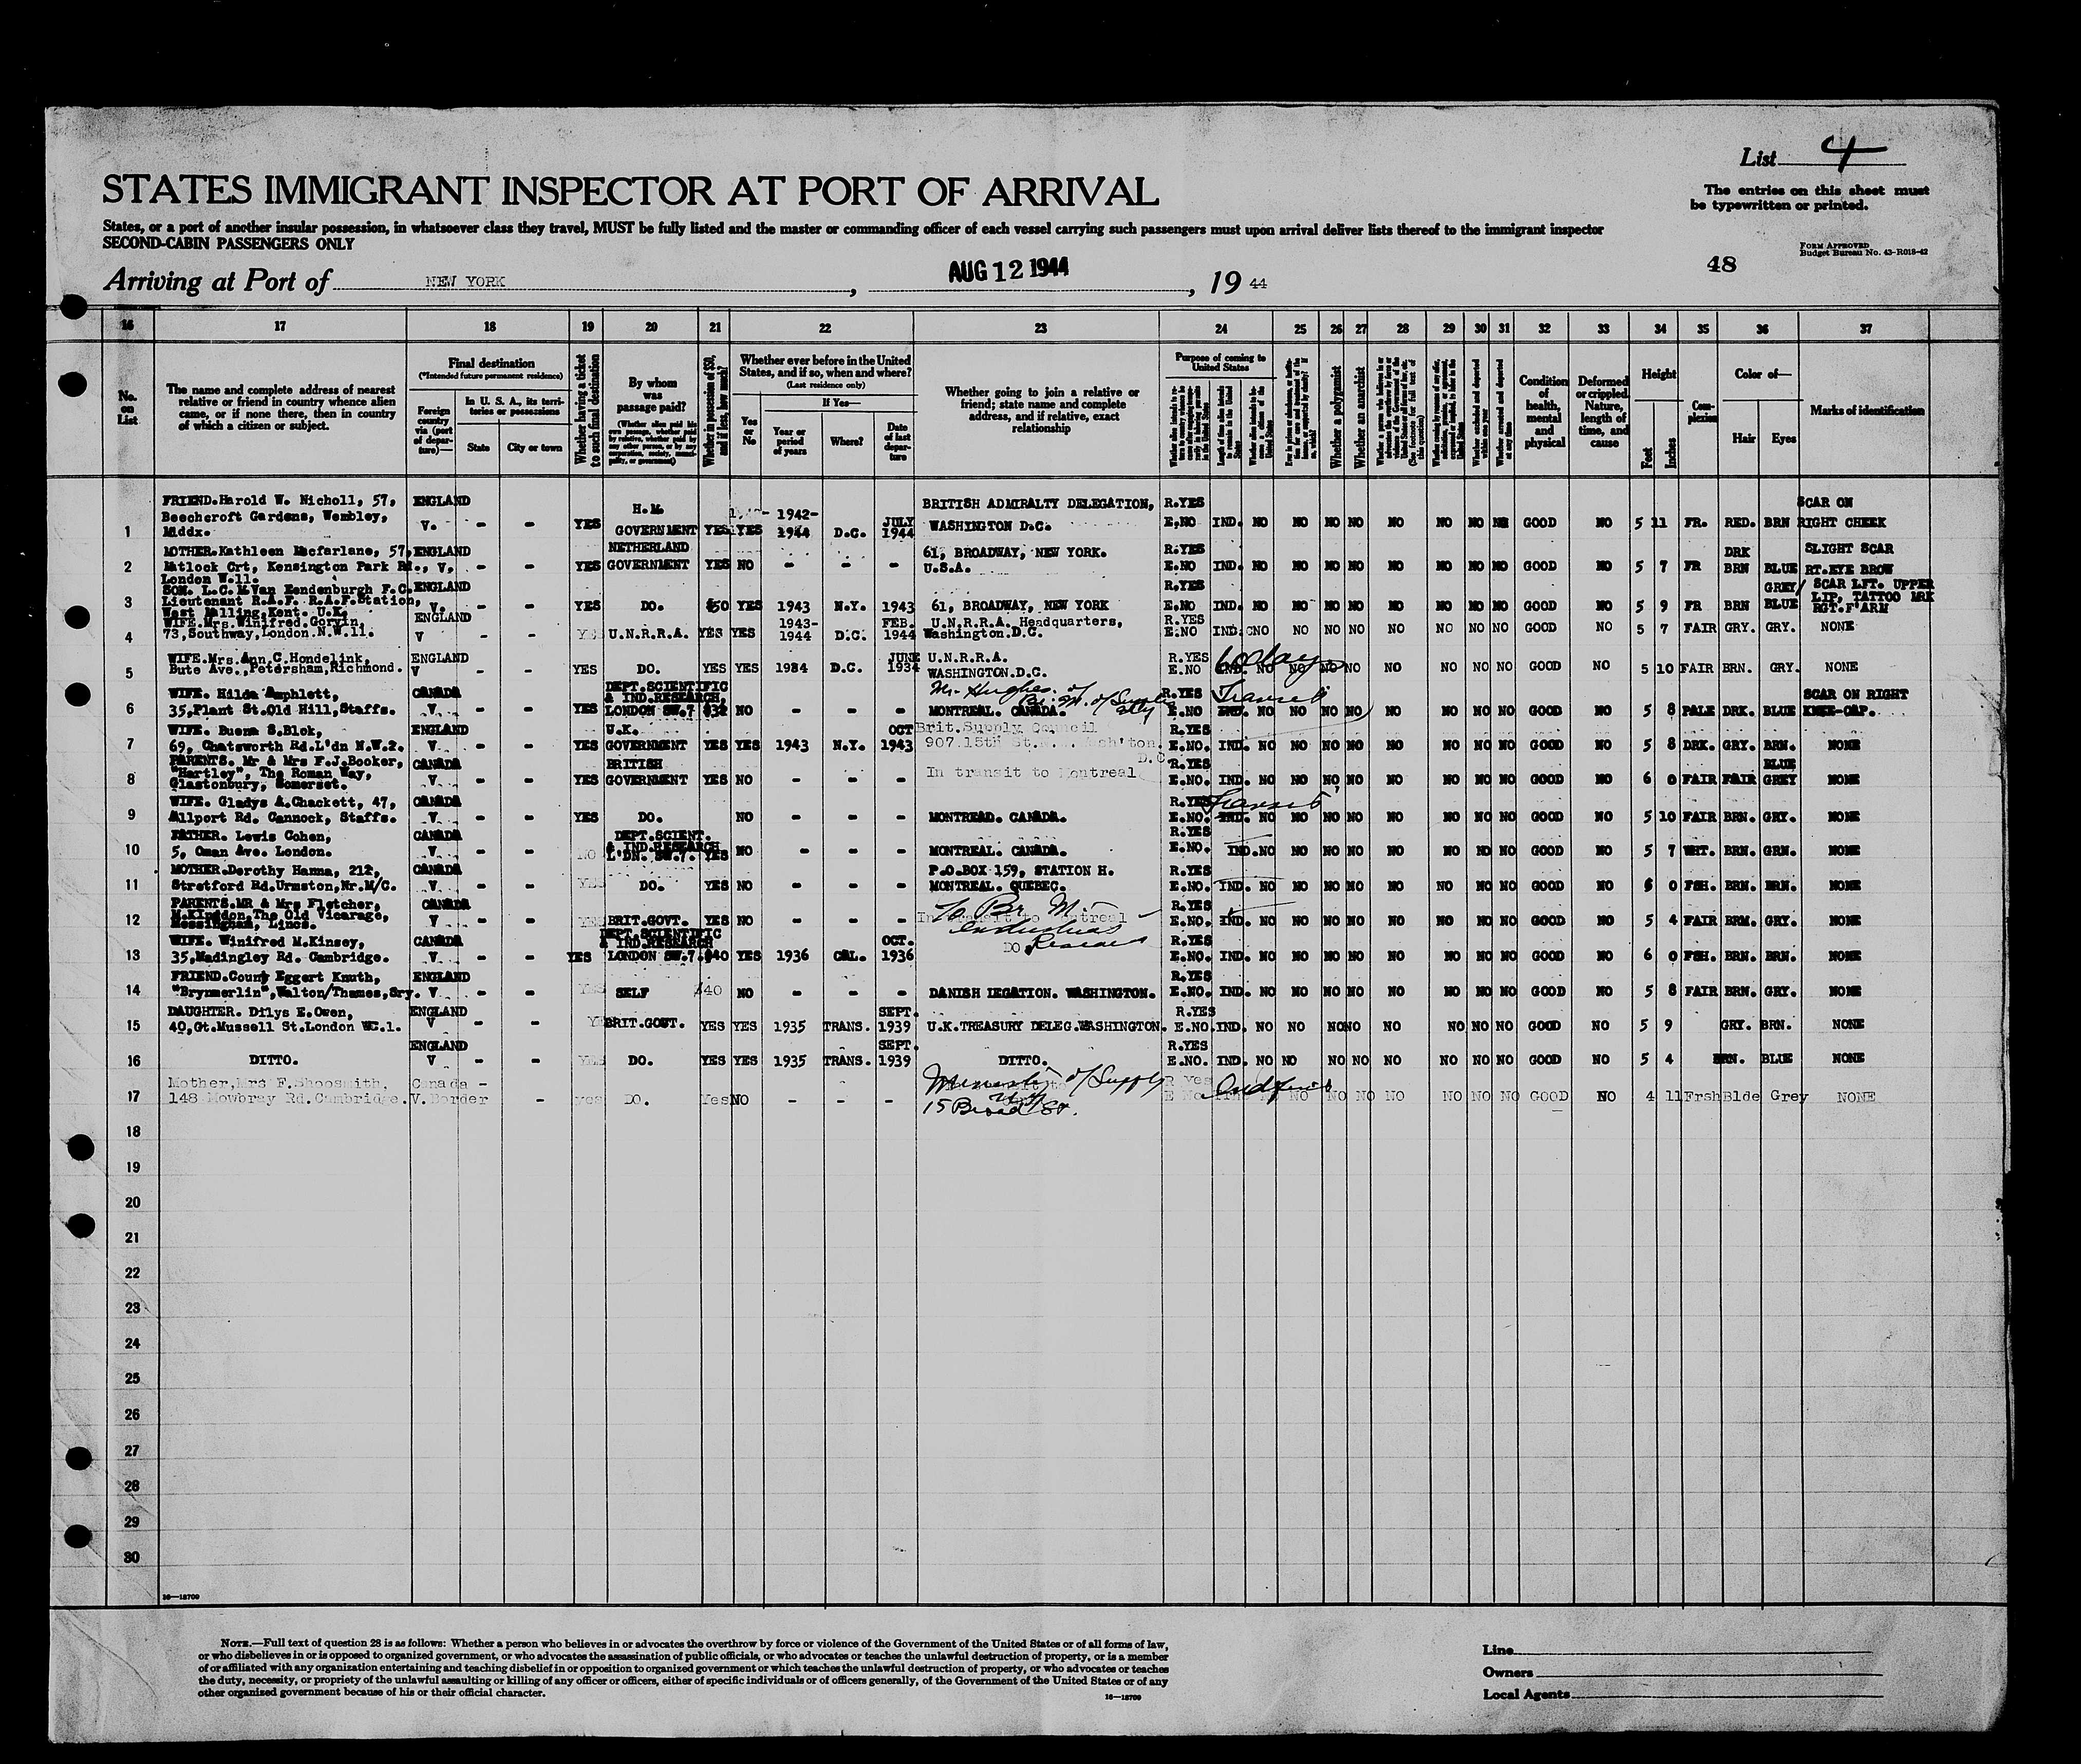 List 4
STATES IMMIGRANT INSPECTOR AT PORT OF ARRIVAL
The entries on this sheet must
be typewritten or printed.
States, or a port of another insular possession, in whatsoever class they travel, MUST be fully listed and the master or commanding officer of each vessel carrying such passengers must upon arrival deliver lists thereof to the immigrant inspector
SECOND-CABIN PASSENGERS ONLY
FORM APPROVED
Budget Bureau No. 43-R018-42
48
Arriving at Port of NEW YORK, AUG 12 1944, 19 44
16 17 18 19 20 21 22 23 24 25 26 27 28 29 30 31 32 33 34 35 36 37
No. on List
The name and complete address of nearest relative or friend in country whence alien came, or if none there, then in country of which a citizen or subject.
Final destination
(*Intended future permanent residence)
Foreign country via (port of departure)—
In U. S. A., its territories or possessions
State
City or town
Whether having a ticket to such final destination
By whom was passage paid?
(Whether alien paid his own passage, whether paid by relative, whether paid by any other person, or by any corporation, society, municipality, or government)
Whether in possession of $50, and if less, how much?
Whether ever before in the United States, and if so, when and where?
(Last residence only)
Yes or No
If Yes—
Year or period of years
Where?
Date of last departure
Whether going to join a relative or friend; state name and complete address, and if relative, exact relationship
Purpose of coming to United States
Whether a polygamist
Whether an anarchist
Condition of health, mental and physical
Deformed or crippled. Nature, length of time, and cause
Height
Feet
Inches
Complexion
Color of—
Hair
Eyes
Marks of identification
1 FRIEND.Harold W. Nicholl, 57, Beechcroft Gardens, Wembley, Middx. ENGLAND V. - - YES H.M. GOVERNMENT YES YES 1942-1944 D.C. JULY 1944 BRITISH ADMIRALTY DELEGATION, WASHINGTON D.C. R.YES E.NO IND. NO NO NO NO NO NO NO NO GOOD NO 5 11 FR. RED. BRN SCAR ON RIGHT CHEEK
2 MOTHER.Kathleen Macfarlane, 57, Matlock Crt, Kensington Park Rd., London W.11. ENGLAND V. - - YES NETHERLAND GOVERNMENT YES NO - - - 61, BROADWAY, NEW YORK. U.S.A. R.YES E.NO IND. NO NO NO NO NO NO NO NO GOOD NO 5 7 FR DRK BRN BLUE SLIGHT SCAR RT.EYE BROW
3 SON. L.C.M.Van Eendenburgh F.O. Lieutenant R.A.F. R.A.F.Station, West Malling,Kent. U.K. ENGLAND V. - - YES DO. $50 YES 1943 N.Y. 1943 61, BROADWAY, NEW YORK R.YES E.NO IND. NO NO NO NO NO NO NO NO GOOD NO 5 9 FR BRN GREY/BLUE SCAR LFT. UPPER LIP, TATTOO MRK RGT.F'ARM
4 WIFE.Mrs.Winifred.Gorvin, 73,Southway,London.N.W.11. ENGLAND V - - YES U.N.R.R.A. YES YES 1943-1944 D.C. FEB. 1944 U.N.R.R.A. Headquarters, Washington.D.C. R.YES E.NO IND. NO NO NO NO NO NO NO NO GOOD NO 5 7 FAIR GRY. GRY. NONE
5 WIFE.Mrs.Ann.C.Hondelink, Bute Ave.,Petersham,Richmond. ENGLAND V - - YES DO. YES YES 1934 D.C. JUNE 1934 U.N.R.R.A. WASHINGTON.D.C. R.YES E.NO IND. 60 days NO NO NO NO NO NO NO NO GOOD NO 5 10 FAIR BRN. GRY. NONE
6 WIFE. Hilda Amphlett, 35,Plant St.Old Hill,Staffs. CANADA V. - - YES DEPT.SCIENTIFIC & IND.RESEARCH, LONDON SW.7 $32 NO - - - Mr. Hughes of Br. M. of Supply MONTREAL. CANADA. R.YES E.NO IND. Transit NO NO NO NO NO NO NO NO GOOD NO 5 8 PALE DRK. BLUE SCAR ON RIGHT KNEE-CAP.
7 WIFE. Buena S.Blok, 69, Chatsworth Rd.L'dn N.W.2. ENGLAND V. - - YES U.K. GOVERNMENT YES YES 1943 N.Y. OCT 1943 Brit.Supply Council 907 15th St.N.W. Wash'ton. D.C. R.YES E.NO. IND. NO NO NO NO NO NO NO NO GOOD NO 5 8 DRK. GRY. BRN. NONE
8 PARENTS. Mr & Mrs F.J.Booker, "Hartley", The Roman Way, Glastonbury, Somerset. CANADA V. - - YES BRITISH GOVERNMENT YES NO - - - In transit to Montreal R.YES E.NO. IND. NO NO NO NO NO NO NO NO GOOD NO 6 0 FAIR FAIR BLUE GREY NONE
9 WIFE. Gladys A.Chackett, 47, Allport Rd. Cannock, Staffs. CANADA V. - - YES DO. NO - - - MONTREAD. CANADA. R.YES E.NO. IND. Transit NO NO NO NO NO NO NO NO GOOD NO 5 10 FAIR BRN. GRY. NONE
10 FATHER. Lewis Cohen, 5, Oman Ave. London. CANADA V. - - NO DEPT.SCIENT. & IND.RESEARCH L'DN. SW.7. YES NO - - - MONTREAL. CANADA. R.YES E.NO. IND. NO NO NO NO NO NO NO NO GOOD NO 5 7 WHT. BRN. GRN. NONE
11 MOTHER.Dorothy Hanna, 212, Stretford Rd.Urmston,Nr.M/C. CANADA V. - - YES DO. YES NO - - - P.O.BOX 159, STATION H. MONTREAL. QUEBEC. R.YES E.NO. IND. NO NO NO NO NO NO NO NO GOOD NO 6 0 FSH. BRN. BRN. NONE
12 PARENTS.MR & Mrs Fletcher, M.Kingdon,The Old Vicarage, Messingham, Lincs. CANADA V - - YES BRIT.GOVT. YES NO - - - In transit to Montreal R.YES E.NO. IND. NO NO NO NO NO NO NO NO GOOD NO 5 4 FAIR BRM. GRY. NONE
13 WIFE. Winifred M.Kinsey, 35,Madingley Rd. Cambridge. CANADA V. - - YES DEPT.SCIENTIFIC & IND.RESEARCH LONDON SW.7. $40 YES 1936 CAL. OCT. 1936 DO R.YES E.NO. IND. NO NO NO NO NO NO NO NO GOOD NO 6 0 FSH. BRN. BRN. NONE
14 FRIEND.Count Eggert Knuth, "Brynmerlin",Walton/Thames,Sry. ENGLAND V. - - YES SELF $40 NO - - - DANISH LEGATION. WASHINGTON. R.YES E.NO. IND. NO NO NO NO NO NO NO NO GOOD NO 5 8 FAIR BRN. GRY. NONE
15 DAUGHTER. Dilys E.Owen, 40,Gt.Mussell St.London WC.1. ENGLAND V - - YES BRIT.GOVT. YES YES 1935 TRANS. SEPT. 1939 U.K.TREASURY DELEG.WASHINGTON. R.YES E.NO. IND. NO NO NO NO NO NO NO NO GOOD NO 5 9 GRY. BRN. NONE
16 DITTO. ENGLAND V - - YES DO. YES YES 1935 TRANS. SEPT. 1939 DITTO. R.YES E.NO. IND. NO NO NO NO NO NO NO NO GOOD NO 5 4 BRN. BLUE NONE
17 Mother,Mrs F.Shoosmith, 148 Mowbray Rd.Cambridge. Canada - V.Border - yes DO. Yes NO - - - Ministry of Supply 15 Broad St. R Yes E No Indefinite NO NO NO NO NO NO NO GOOD NO 4 11 Frsh Blde Grey NONE
18
19
20
21
22
23
24
25
26
27
28
29
30
16—18709
NOTE.—Full text of question 28 is as follows: Whether a person who believes in or advocates the overthrow by force or violence of the Government of the United States or of all forms of law,
or who disbelieves in or is opposed to organized government, or who advocates the assassination of public officials, or who advocates or teaches the unlawful destruction of property, or is a member
of or affiliated with any organization entertaining and teaching disbelief in or opposition to organized government or which teaches the unlawful destruction of property, or who advocates or teaches
the duty, necessity, or propriety of the unlawful assaulting or killing of any officer or officers, either of specific individuals or of officers generally, of the Government of the United States or of any
other organized government because of his or their official character.
16—18709
Line
Owners
Local Agents